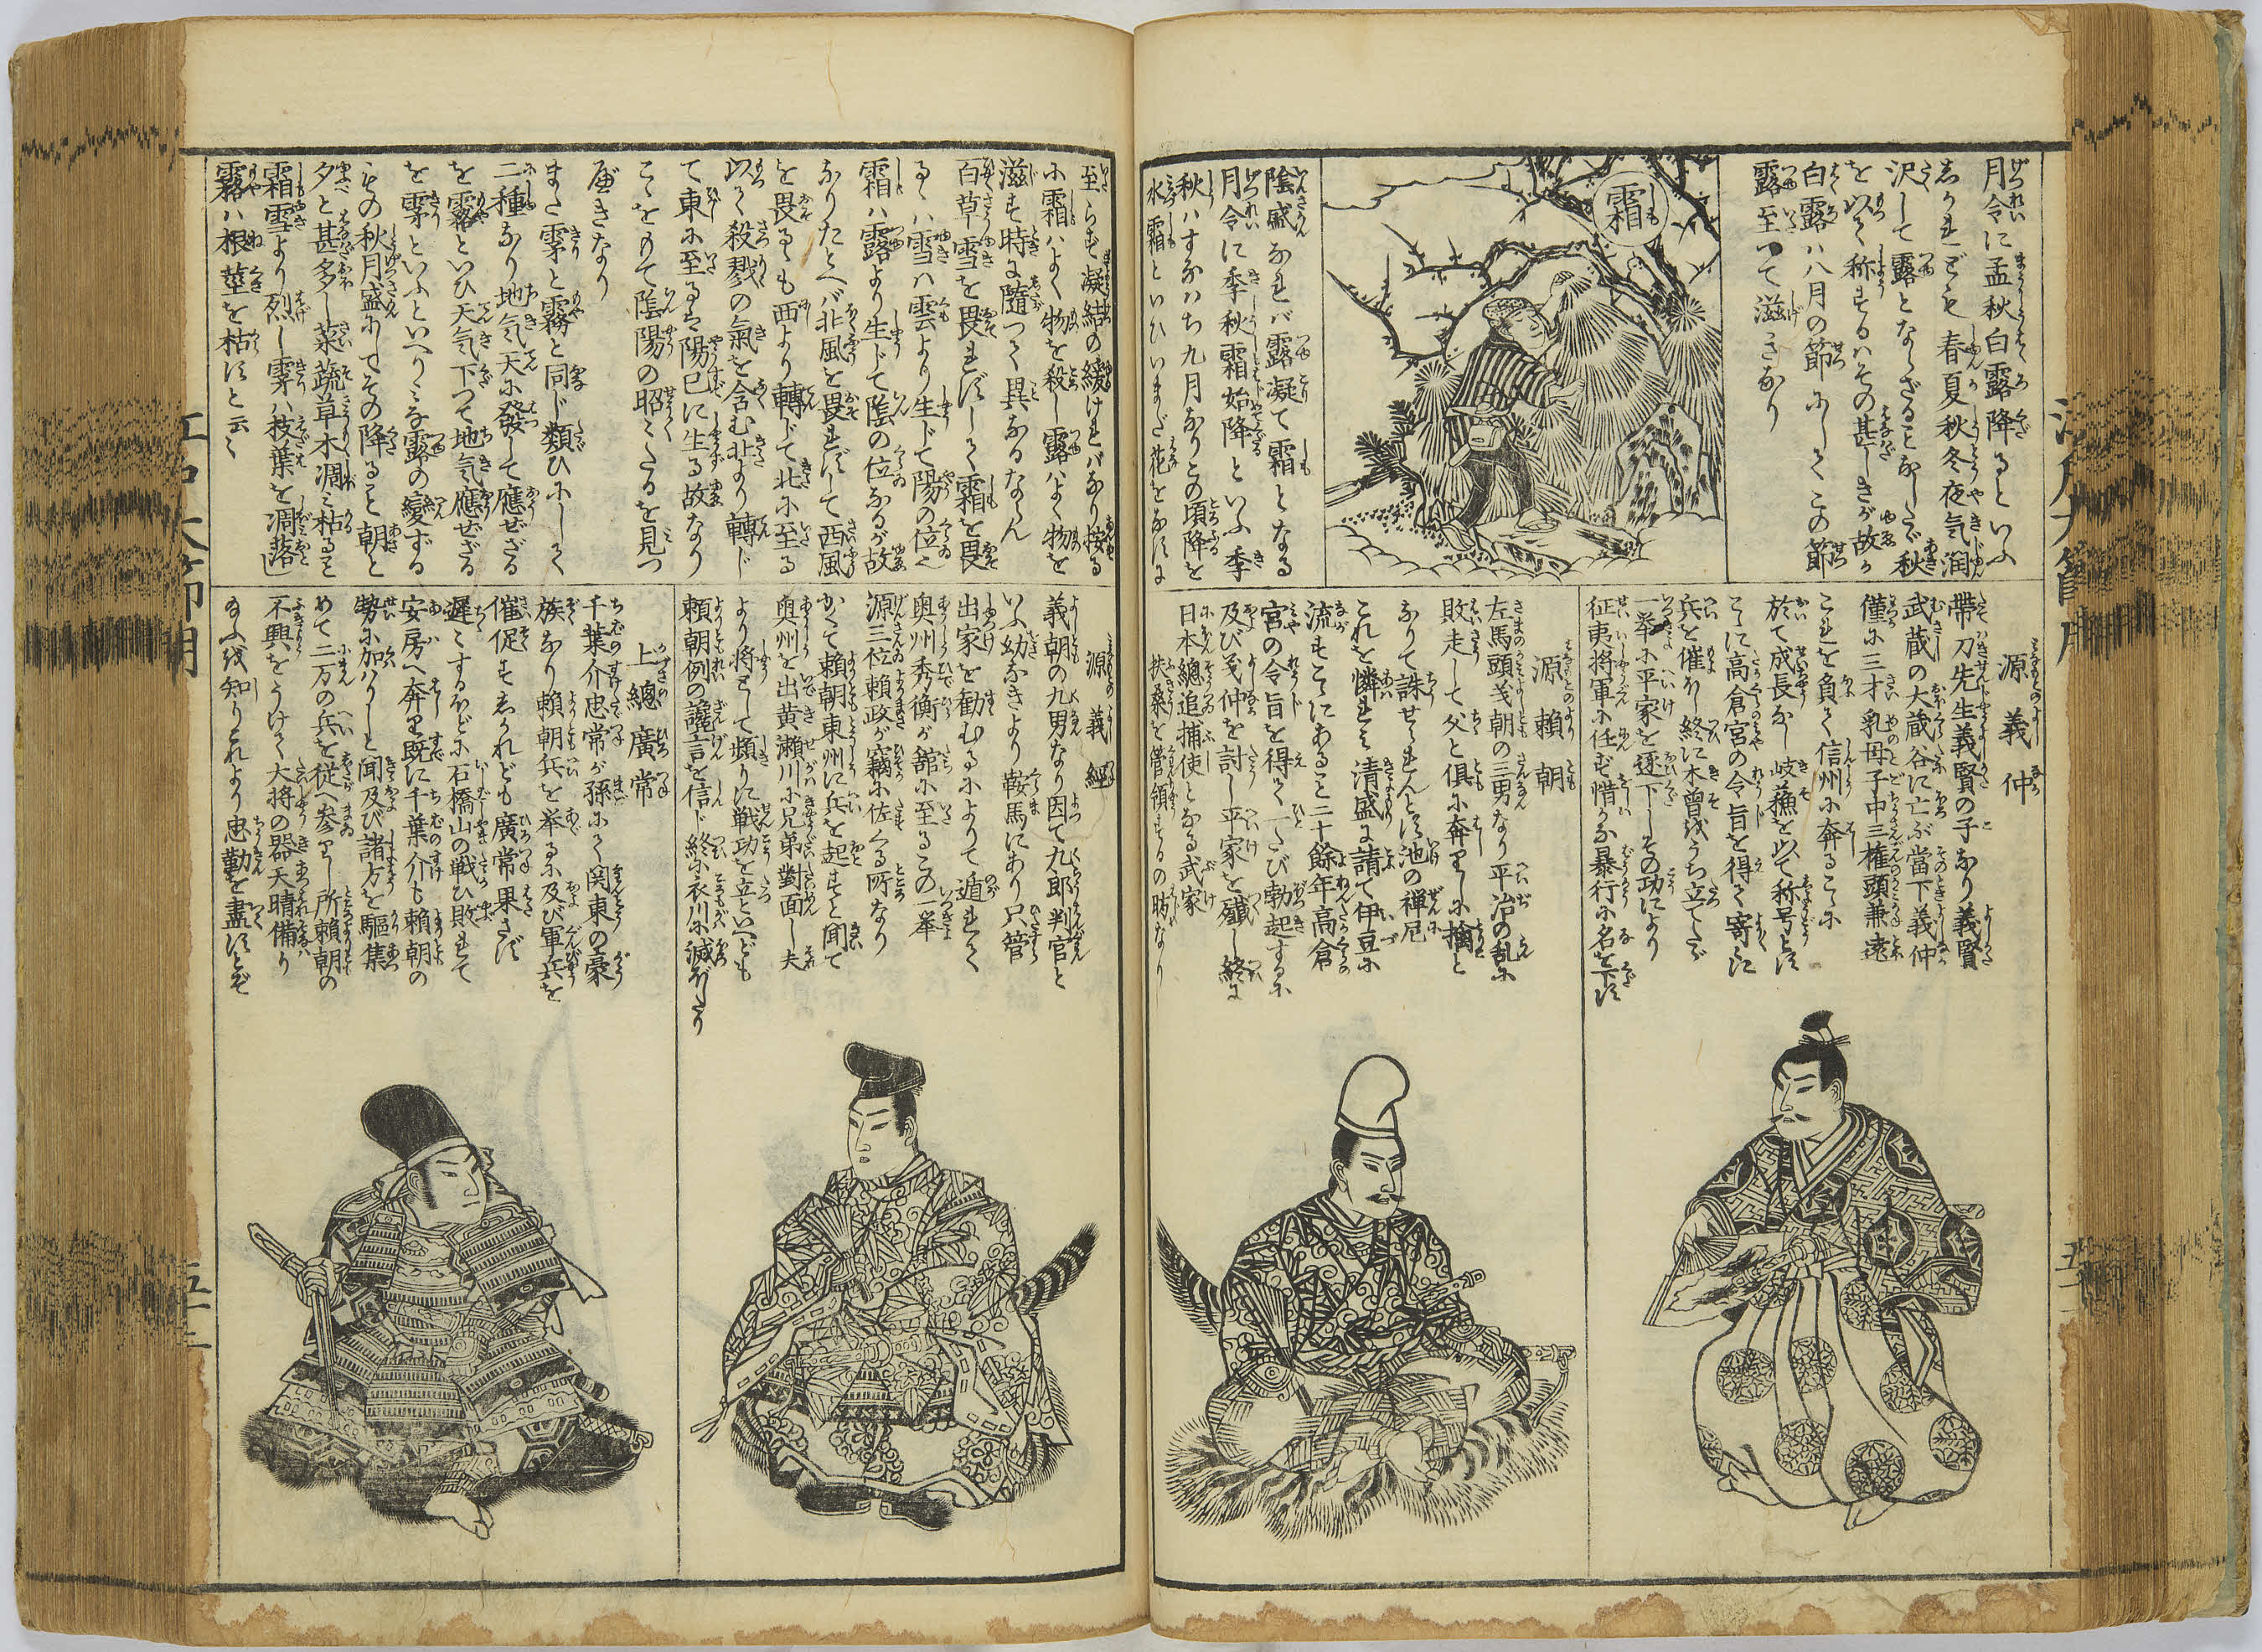 月令に孟秋白露降るといふ
しかれども春夏秋冬夜気潤
沢して露とならざることなしたゞ秋
を以て称するハその甚しきが故か
白露ハ八月の節にしてこの節
露至つて滋きなり
霜
陰盛なれバ露凝て霜となる
月令に季秋霜始降といふ季
秋ハすなハち九月なりこの頃降を
水霜といひいまだ花をなさに
源義仲
帯刀先生義賢の子なり義賢
武蔵の大蔵谷に亡ぶ當下義仲
僅に三才乳母子中三権頭兼遠
これを負て信州に奔るこゝに
於て成長なし岐蘓を以て称号とす
こゝに高倉宮の令旨を得て寄に
兵を催ふし終に木曽をうち立てたゞ
一挙に平家を逐下しその功により
征夷将軍に任ず惜かな暴行に名を下す
源頼朝
左馬頭義朝の三男なり平冶の乱に
敗走して父と倶に奔りしに擒と
なりて誅せられんとす池の禅尼
これを憐れミ清盛に請て伊豆に
流すこゝにあること二十餘年高倉
宮の令旨を得て一たび勃起するに
及び義仲を討し平家を殲し終に
日本總追捕使となる武家
扶桑を管領するの時なり
至らず凝結の緩ければなり按る
に霜ハよく物を殺し露ハよく物を
滋す時に随つて異なるならん
百草雪を畏れずして霜を畏
るゝハ雪ハ雲より生じて陽の位
霜ハ露より生じて陰の位なるが故
なりたとへバ北風を畏れずして西風
を畏るゝも西より轉じて北に至る
以て殺戮の氣を含む北より轉じ
て東に至るハ陽已に生る故なり
こゝをもて陰陽の昭々たるを見つ
べきなり
また雺と霧と同じ類ひにして
二種なり地気天に發して應ぜざる
を霧といひ天気下つて地気應ぜざる
を雺といふといへりミな露の變ずる
もの秋月盛にしてその降ること朝と
夕と甚多し菜蔬草木凋ミ枯るゝこと
霜雪より烈し雺ハ枝葉を凋落し
霧ハ根莖を枯すと云々
源義經
義朝の九男なり因て九郎判官と
いふ幼なきより鞍馬にあり只管
出家を勧むるによりて遁れて
奥州秀衡が舘に至るこの一挙
源三位頼政が竊に佐くる所なり
かくて頼朝東州に兵を起すと聞て
奥州を出黄瀬川に兄弟對面し夫
より将として頻りに戦功を立といへども
頼朝例の讒言を信じ終に衣川に滅びたり
上總廣常
千葉介忠常が孫にて関東の豪
族なり頼朝兵を挙るに及び軍兵を
催促すしかれども廣常果さず
遅々するほどに石橋山の戦ひ敗れて
安房へ奔り既に千葉介も頼朝の
勢に加ハりしと聞及び諸方を驅集
めて二万の兵を従へ参りし所頼朝の
不興をうけて大将の器天晴備り
給ふを知りこれより忠勤を盡すとぞ